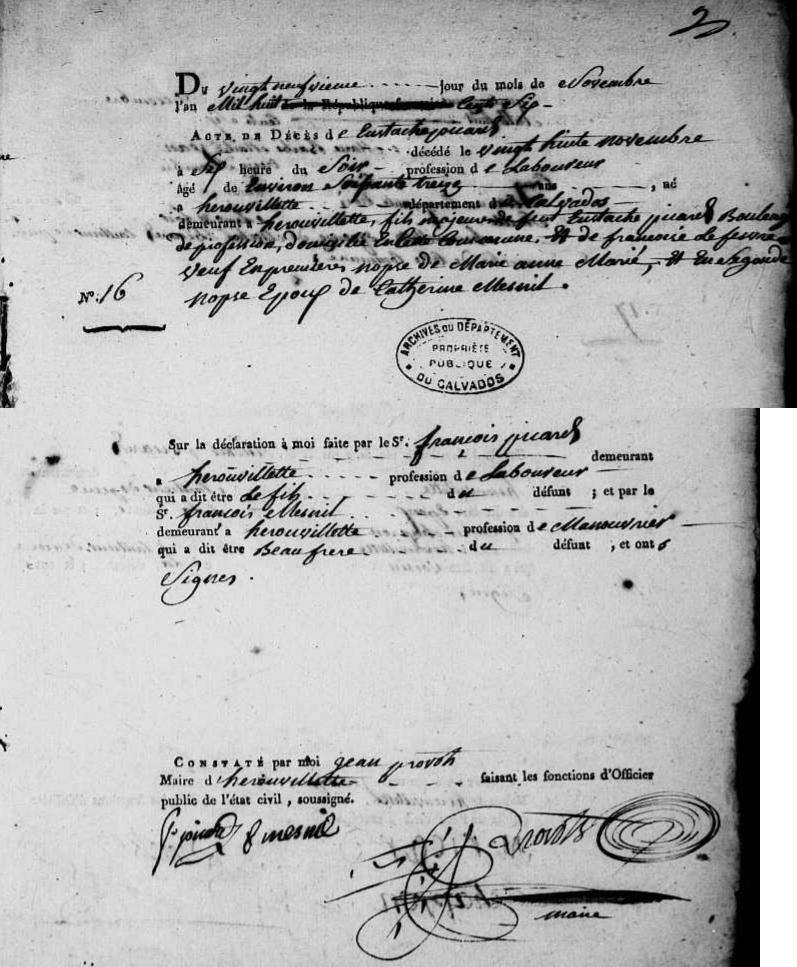 2
Du vingt neufvieme jour du mois de Novembre
l'an Mil huit de la République Cents Six
ACTE DE DÉCÈS de Eustache picard
décédé le vingt huite novembre
à Six heure du Soir profession de Laboureur
âgé de Environ Soixante treize ans, né
a herouvillette département du Calvados
demeurant a herouvillette, fils majeur de feut Eustache picard Boulang
de profession, domicilié En Cette Commune, Et de francoise Le fesvre
veuf En premieres nopse de Marie anne Marié, Et En segonde
Nº. 16
nopse Epoux de Catherine Mesnil.
ARCHIVES DU DÉPARTEMENT
PROPRIÉTÉ
PUBLIQUE
DU CALVADOS
Sur la déclaration à moi faite par le Sr. françois picard
demeurant
a herouvillette profession de Laboureur
qui a dit être Le fils du défunt ; et par le
Sr. françois Mesnil
demeurant a herouvillette profession de Manouvrier
qui a dit être Beau frere du défunt, et ont
Signes.
CONSTATÉ par moi Jean provost
Maire d'herouvillette faisant les fonctions d'Officier
public de l'état civil, soussigné.
f picard f mesnil Provost
maire